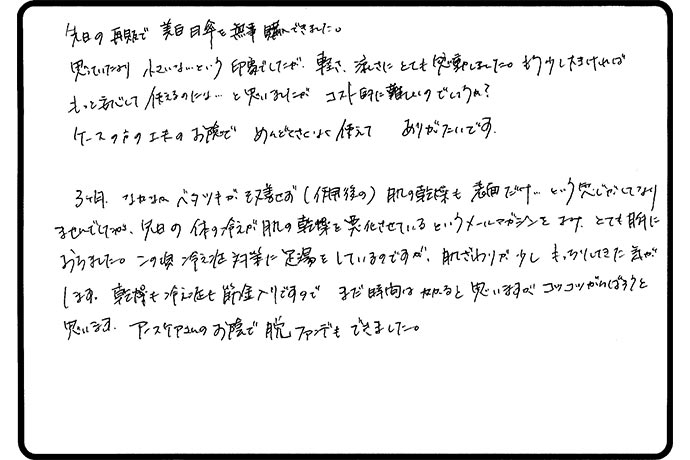 先日の再販で美白日傘を無事購入できました。
思っていたより小さいな…という印象でしたが、軽さ、涼しさにとても感動しました。もう少し大きければ
もっと安心して使えるのにな…と思いましたが コスト的に難しいのでしょうか?
ケースの方の工夫のお陰で めんどくさくなく使えて ありがたいです。
3ヶ月、なかなかベタツキが改善せず(使用後の)肌の乾燥も表面だけ…という感じがしてなり
ませんでしたが、先日の体の冷えが肌の乾燥を悪化させているというメールマガジンを 、とても腑に
おちました。この頃冷え症対策に足湯をしているのですが、肌ざわりが少しもっちりしてきた気が
します。乾燥も冷え症も筋金入りですので まだ時間はかかると思いますがコツコツがんばろうと
思います。アースケアさんのお陰で脱ファンデもできました。